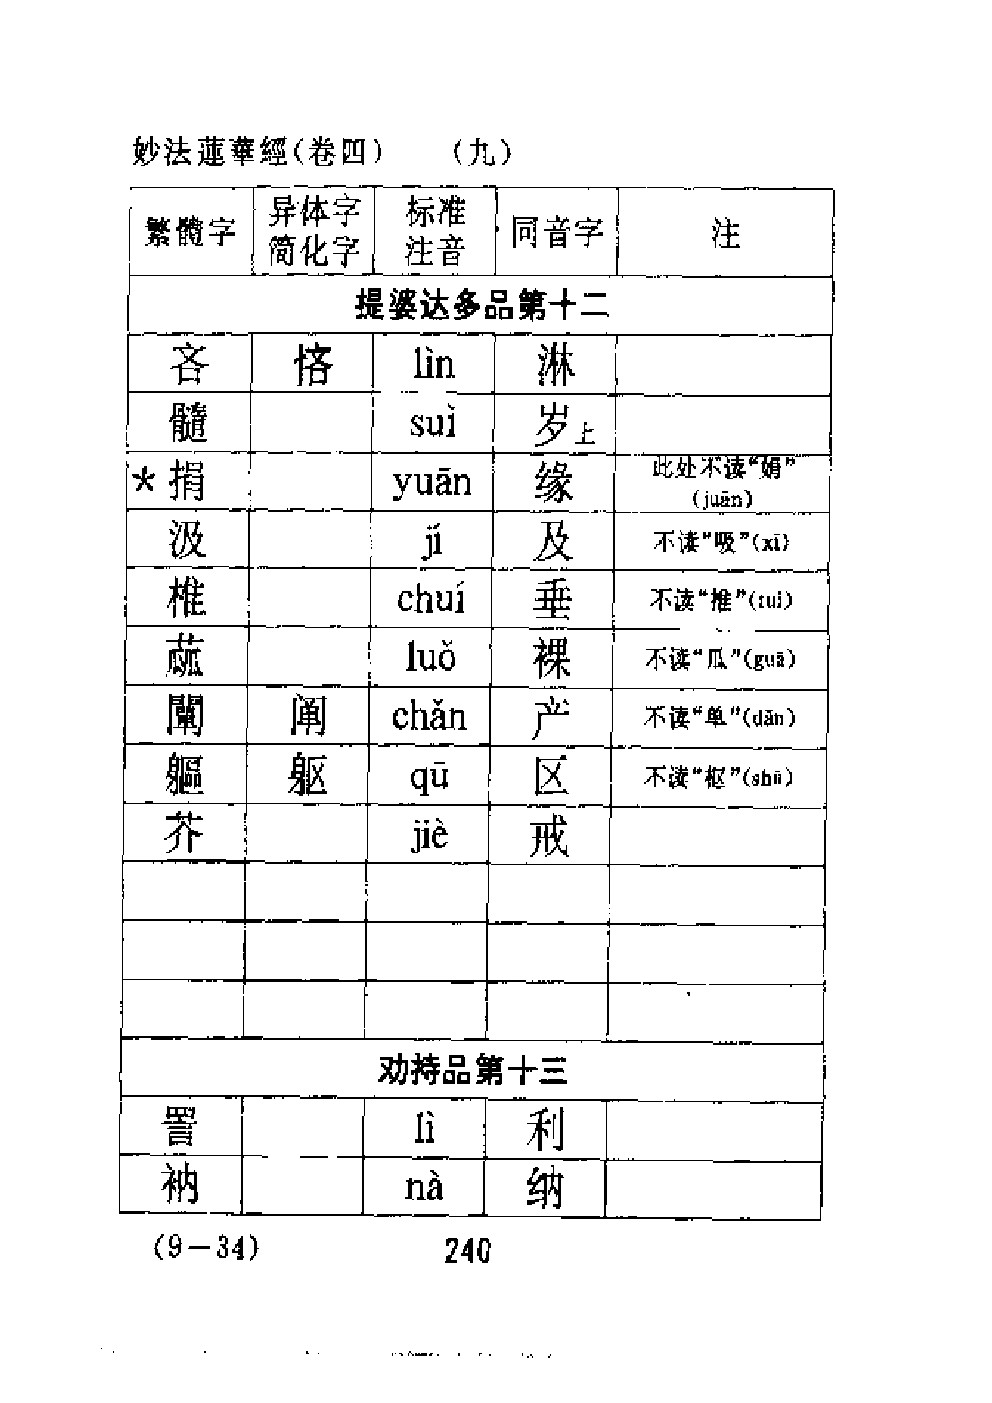 妙法蓮華經(卷四)　(九)
繁體字 异体字简化字 标准注音 同音字 注
提婆达多品第十二
吝 悋 lìn 淋
髓 suì 岁上
*捐 yuān 缘 此处不读“娟”(juān)
汲 jí 及 不读“吸”(xī)
椎 chuí 垂 不读“推”(tui)
蓏 luǒ 裸 不读“瓜”(guā)
闡 阐 chǎn 产 不读“单”(dān)
軀 躯 qū 区 不读“枢”(shū)
芥 jiè 戒
劝持品第十三
詈 lì 利
衲 nà 纳
(9－34) 240